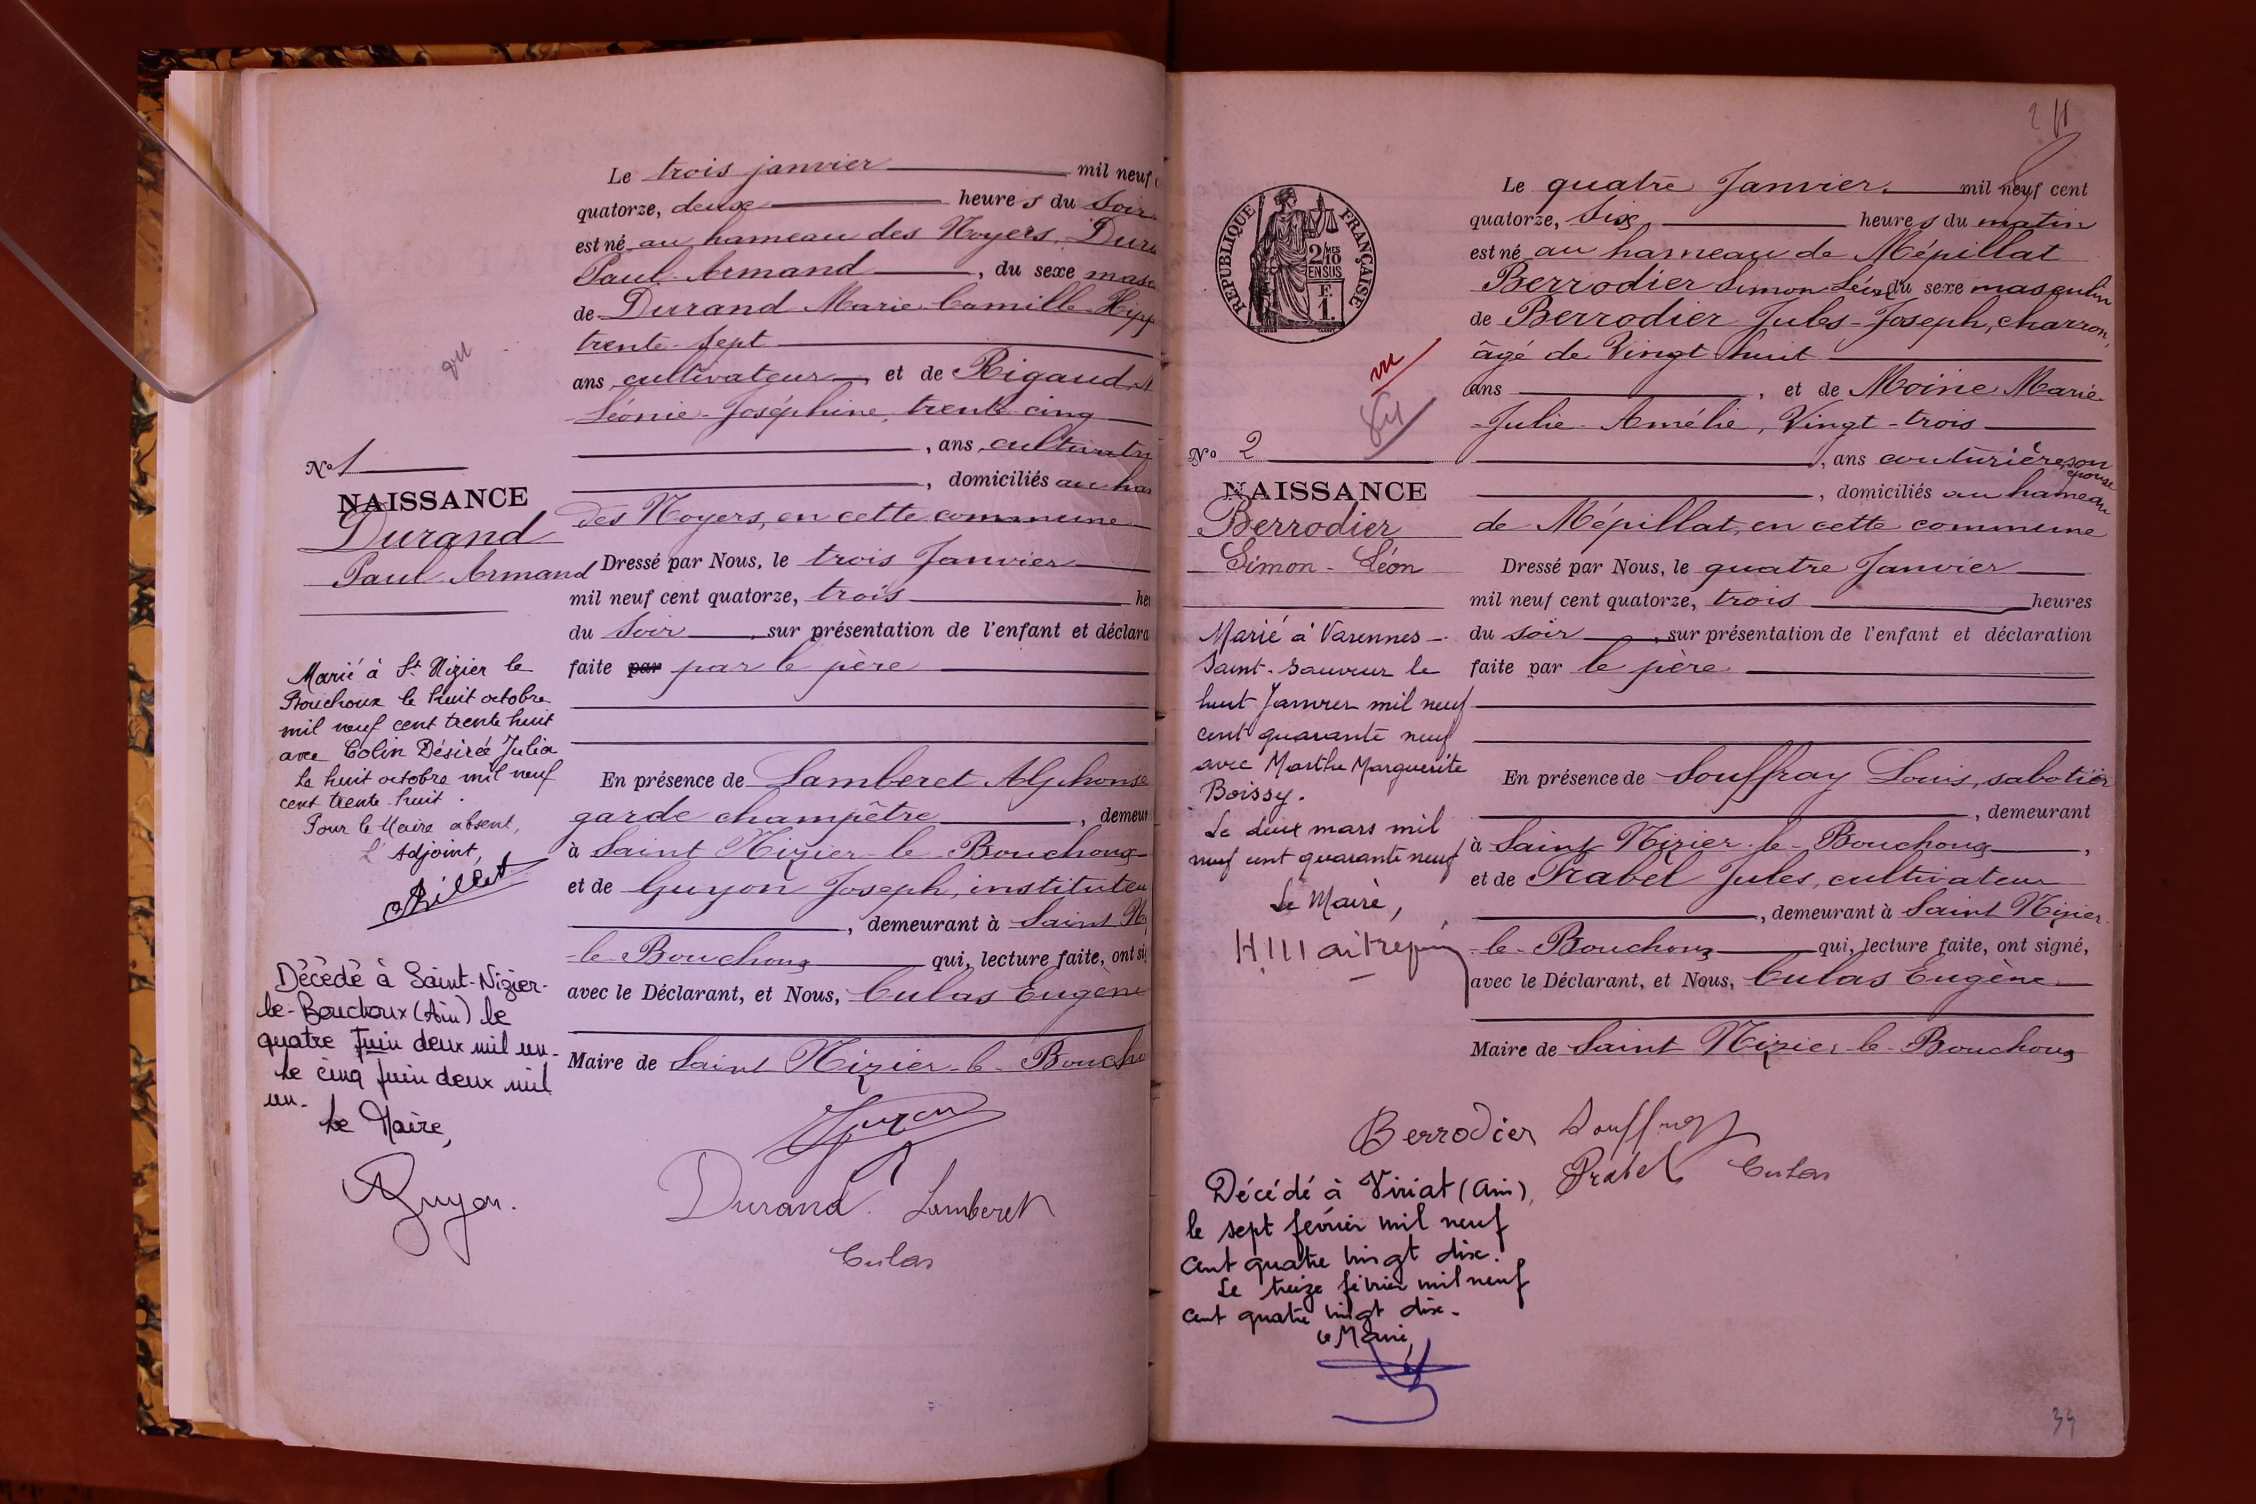 Le trois janvier mil neuf
quatorze, deux heures du soir
est né au hameau des Noyers, Dura
Paul Armand, du sexe masc
de Durand Marie Camille Hipp
trente-sept
ans cultivateur et de Rigaud
Léonie-Joséphine, trente cinq
, ans, cultivatri
, domiciliés au ham
des Noyers, en cette commune
vu
No 1
NAISSANCE
Durand
Paul Armand
Dressé par Nous, le trois Janvier
mil neuf cent quatorze, trois heu
du soir, sur présentation de l'enfant et déclara
faite par par le père
Marié à St Nizier le
Bouchoux le huit octobre
mil neuf cent trente huit
avec Colin Désirée Julia
Le huit octobre mil neuf
cent trente-huit.
Pour le Maire absent,
L'Adjoint,
En présence de Lamberet Alphonse
garde champêtre, demeur
à Saint Nizier-le-Bouchoux
et de Guyon Joseph, instituteu
, demeurant à Saint Ni
-le-Bouchoux qui, lecture faite, ont si
avec le Déclarant, et Nous, Culas Eugène
Maire de Saint Nizier-le-Boucho
Décédé à Saint-Nizier-
le-Bouchoux (Ain) le
quatre Juin deux mil un-
Le cinq Juin deux mil
un-
Le Maire,
Guyon.
Guyon
Durand. Lamberet
Culas
2
RÉPUBLIQUE FRANÇAISE
2/10
EN SUS
F.
1.
Le quatre Janvier. mil neuf cent
quatorze, six heures du matin
est né au hameau de Mépillat
Berrodier Simon Léon, du sexe masculin
de Berrodier Jules-Joseph, charron,
âgé de Vingt huit
ans, et de Moine Marie-
-Julie-Amélie, Vingt-trois
, ans couturière, son
épouse
, domiciliés au hameau
de Mépillat, en cette commune
vu
vu
No 2
NAISSANCE
Berrodier
Simon-Léon
Dressé par Nous, le quatre Janvier
mil neuf cent quatorze, trois heures
du soir, sur présentation de l'enfant et déclaration
faite par le père
Marié à Varennes-
Saint-Sauveur le
huit Janvier mil neuf
cent quarante neuf
avec Marthe Marguerite
Boissy.
Le deux mars mil
neuf cent quarante neuf
Le Maire,
En présence de Souffray Louis, sabotier
, demeurant
à Saint Nizier-le-Bouchoux,
et de Prabel Jules, cultivateur
, demeurant à Saint Nizier-
-le-Bouchoux qui, lecture faite, ont signé,
avec le Déclarant, et Nous, Culas Eugène
Maire de Saint Nizier-le-Bouchoux
Berrodier Souffray
Prabel Culas
Décédé à Viriat (Ain),
le sept février mil neuf
cent quatre vingt dix.
Le treize février mil neuf
cent quatre vingt dix-
Le Maire,
39